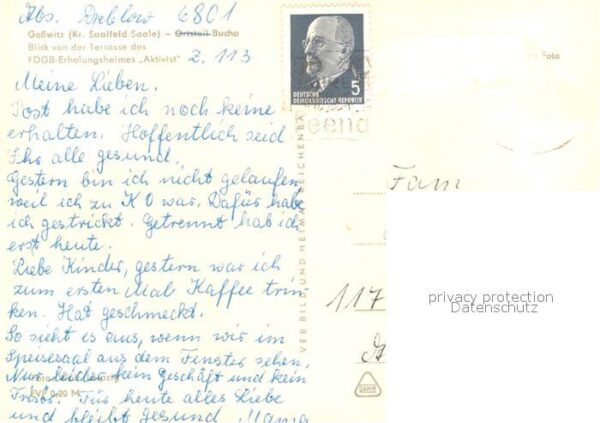 Abs. Dreblow 6801
Goßwitz (Kr. Saalfeld Saale) – Ortsteil Bucha
Blick von der Terrasse des
FDGB-Erholungsheimes „Aktivist"
Z. 113
Foto
Meine Lieben.
Post habe ich noch keine
erhalten. Hoffentlich seid
Ihr alle gesund.
Gestern bin ich nicht gelaufen
weil ich zu K O war. Dafür habe
ich gestrickt. Getrennt hab ich
erst heute.
Liebe Kinder, gestern war ich
zum ersten Mal Kaffee trin
ken. Hat geschmeckt.
So sieht es aus, wenn wir im
Speisesaal aus dem Finster sehen.
Nur leider kein Geschäft und kein
Frisör. Für heute alles Liebe
und bleibt gesund Mama
EVP 0,20 M
DEUTSCHE
DEMOKRATISCHE REPUBLIK
5
VEB BILD UND HEIMAT REICHENBACH
Fam
117
privacy protection
Datenschutz